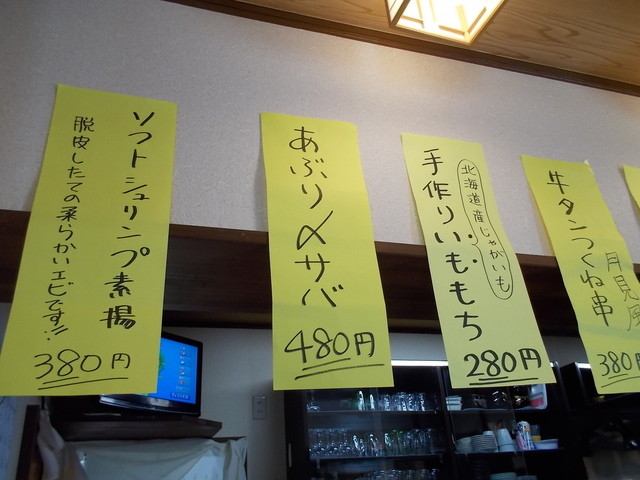 ソフトシュリンプ素揚
脱皮したての柔らかいエビです!!
380円
あぶり〆サバ
480円
北海道産じゃがいも
手作りいももち
280円
月見風
牛タンつくね串
380円